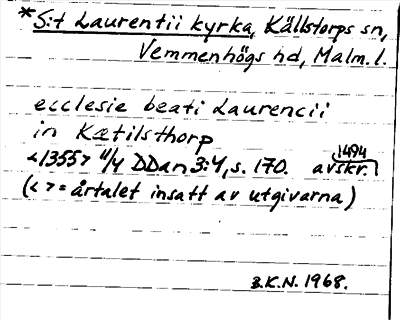 *S:t Laurentii kyrka, Källstorps sn,
Vemmenhögs hd, Malm. l.
ecclesie beati Laurencii
in Kætilsthorp
1494
<1355> 11/4 DDan 3:4, s. 170. avskr.
(<> = årtalet insatt av utgivarna)
B.K.N. 1968.